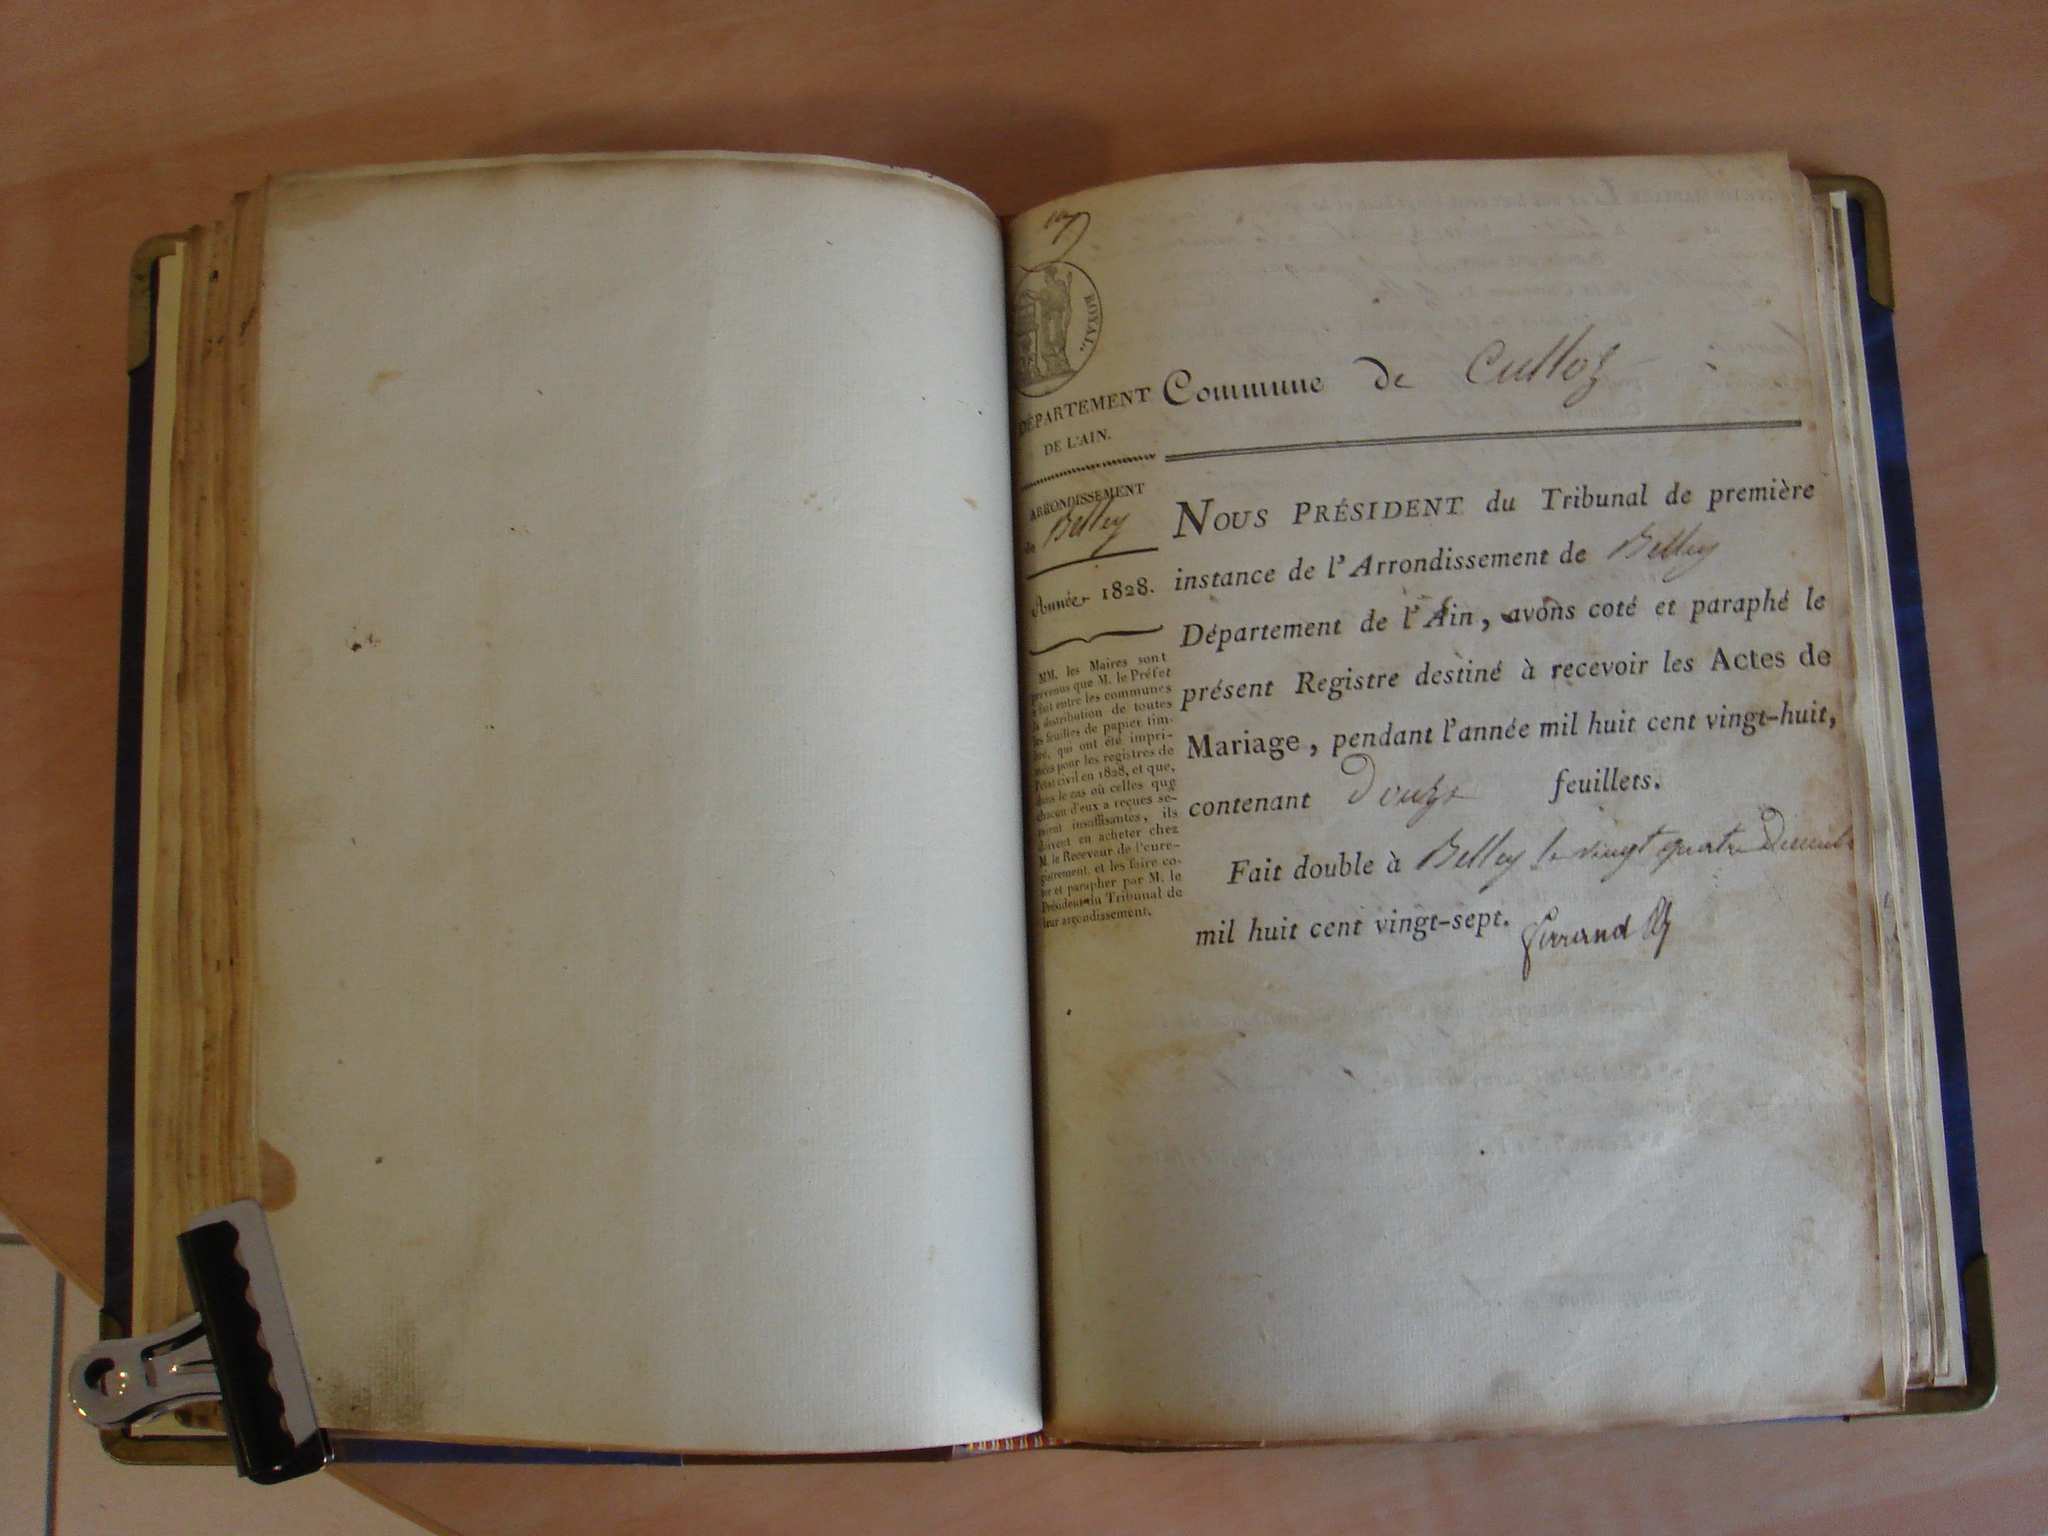 ROYAL.
DÉPARTEMENT
DE L'AIN.
ARRONDISSEMENT
de Belley
Année 1828.
MM. les Maires sont
prévenus que M. le Préfet
a fait entre les communes
la distribution de toutes
les feuilles de papier tim-
bré, qui ont été impri-
mées pour les registres de
l'état civil en 1828, et que,
dans le cas où celles que
chacun d'eux a reçues se-
raient insuffisantes, ils
doivent en acheter chez
M. le Receveur de l'enre-
gistrement, et les faire co-
ter et parapher par M. le
Président du Tribunal de
leur arrondissement.
Commune de Culloz
NOUS PRÉSIDENT du Tribunal de première
instance de l'Arrondissement de Belley
Département de l'Ain, avons coté et paraphé le
présent Registre destiné à recevoir les Actes de
Mariage, pendant l'année mil huit cent vingt-huit,
contenant Douze feuillets.
Fait double à Belley le vingt quatre Décembre
mil huit cent vingt-sept. Ferrand